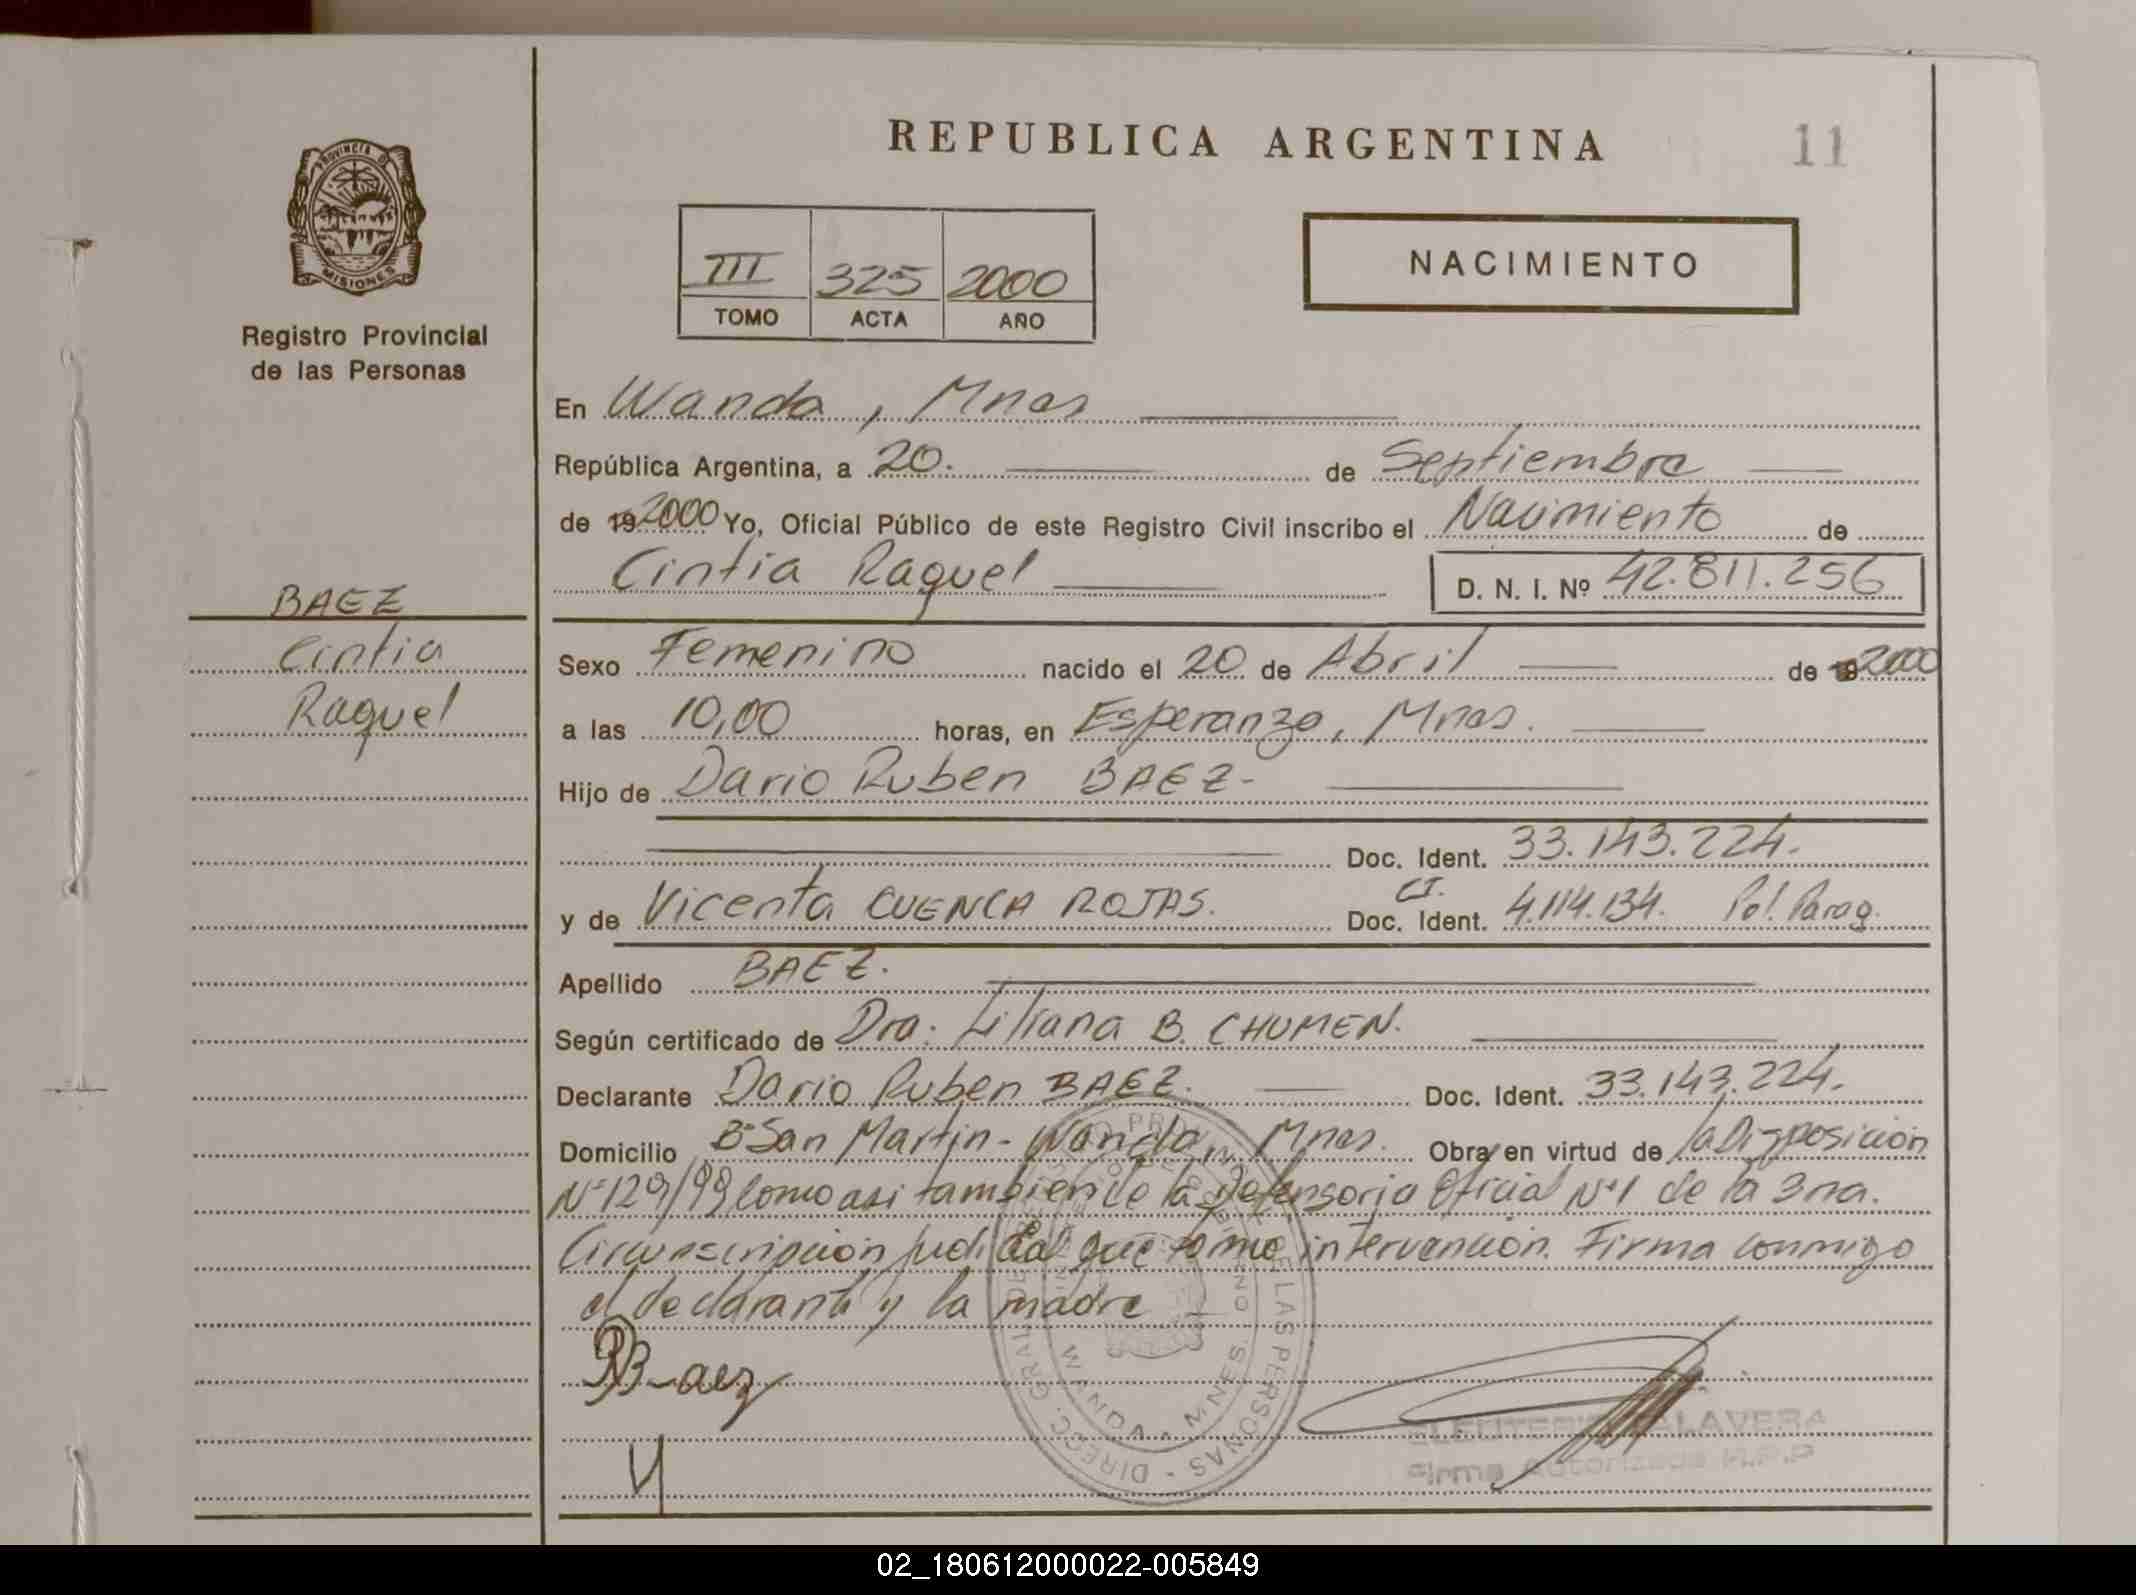 REPUBLICA ARGENTINA
11
PROVINCIA DE
MISIONES
Registro Provincial
de las Personas
III 325 2000
TOMO ACTA AÑO
NACIMIENTO
En Wanda, Mnes
República Argentina, a 20. de Septiembre
de 19 2000 Yo, Oficial Público de este Registro Civil inscribo el Nacimiento de
Cintia Raquel D. N. I. Nº 42.811.256
BAEZ
Cintia
Raquel
Sexo Femenino nacido el 20 de Abril de 2000
a las 10,00 horas, en Esperanza, Mnes.
Hijo de Dario Ruben BAEZ-
Doc. Ident. 33.143.224.
CI.
y de Vicenta CUENCA ROJAS. Doc. Ident. 4.114.134. Pol. Parag.
Apellido BAEZ.
Según certificado de Dra: Liliana B. CHUMEN.
Declarante Dario Ruben BAEZ. Doc. Ident. 33.143.224.
Domicilio Bº San Martin - Wanda, Mnes. Obra en virtud de la Disposición
Nº 129/99 como asi tambien de la Defensoria Oficial Nº 1 de la 3ra.
Circunscripción judicial que tomo intervención. Firma conmigo
el declarante y la madre
Baez
DIRECC. GRAL. DE LAS PERSONAS
WANDA MNES.
ELEUTERIO TALAVERA
Firma Autorizada R.P.P
02_180612000022-005849